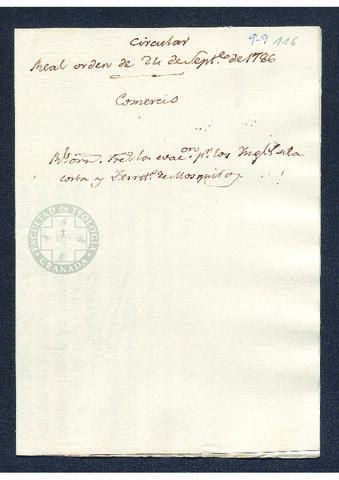 9-9 116
Circular
Real orden de 24 de Sept.e de 1786
Comercio
Rl. orn. sre la evac.on pr. los Ingl.s de la
costa y Terr.o de Mosquitos
FACULTAD de TEOLOGIA
GRANADA